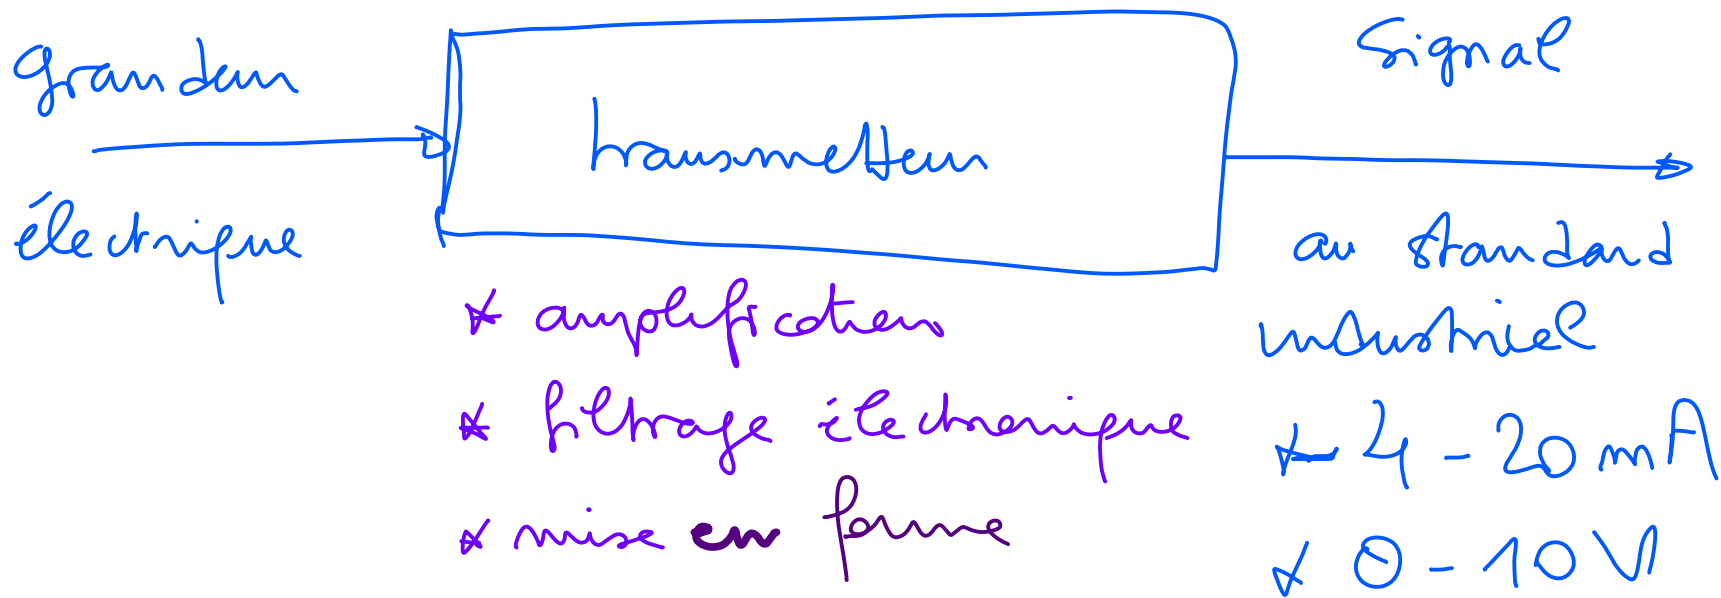 grandeur
électrique
transmetteur
* amplification
* filtrage électronique
* mise en forme
signal
au standard
industriel
* 4 - 20 mA
* 0 - 10 V